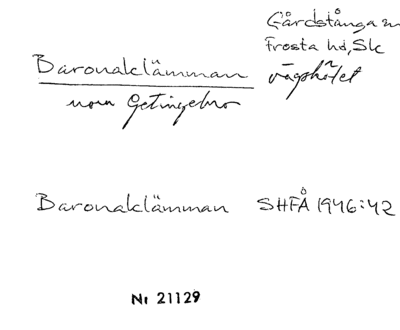 Gårdstånga
Frosta hd, Sk
Baronaklämman
norr Getingebro
Baronaklämman SHFÅ 1946:42
Nr 21129